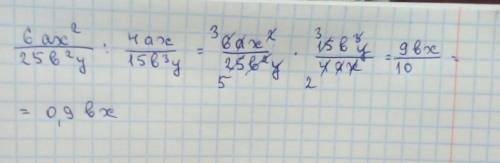 6ax²/25b²y : 4ax/15b³y = ³6ax²/25b²y₅ · ³15b³y/4ax₂ = 9bx/10 =
= 0,9 bx